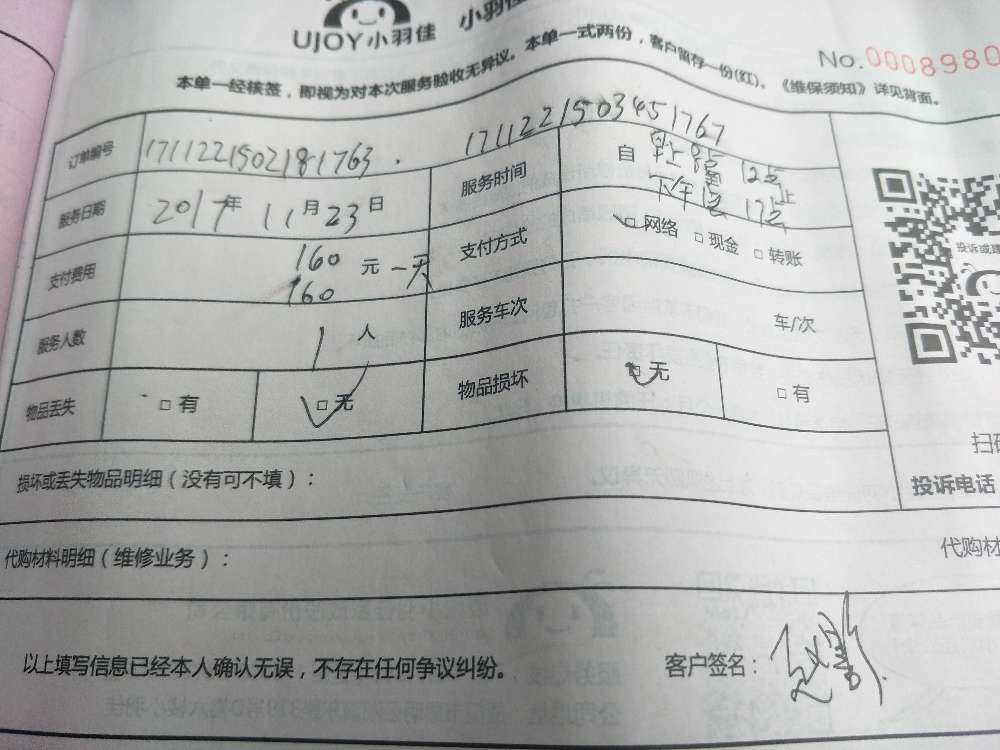 UJOY小羽佳 小羽佳
No.0008980
本单一经核签，即视为对本次服务验收无异议。本单一式两份，客户留存一份(红)。《维保须知》详见背面。
订单编号 1711221502181763. 1711221503451767
服务日期 2017年 11月23日 服务时间 自 早上8点 12点止
下午1点 17点
支付费用 160元一天 支付方式 □网络 □现金 □转账
160
服务人数 1人 服务车次 车/次
物品丢失 □有 □无 物品损坏 □无 □有
损坏或丢失物品明细（没有可不填）：
投诉电话
代购材料明细（维修业务）： 代购材
以上填写信息已经本人确认无误，不存在任何争议纠纷。 客户签名：